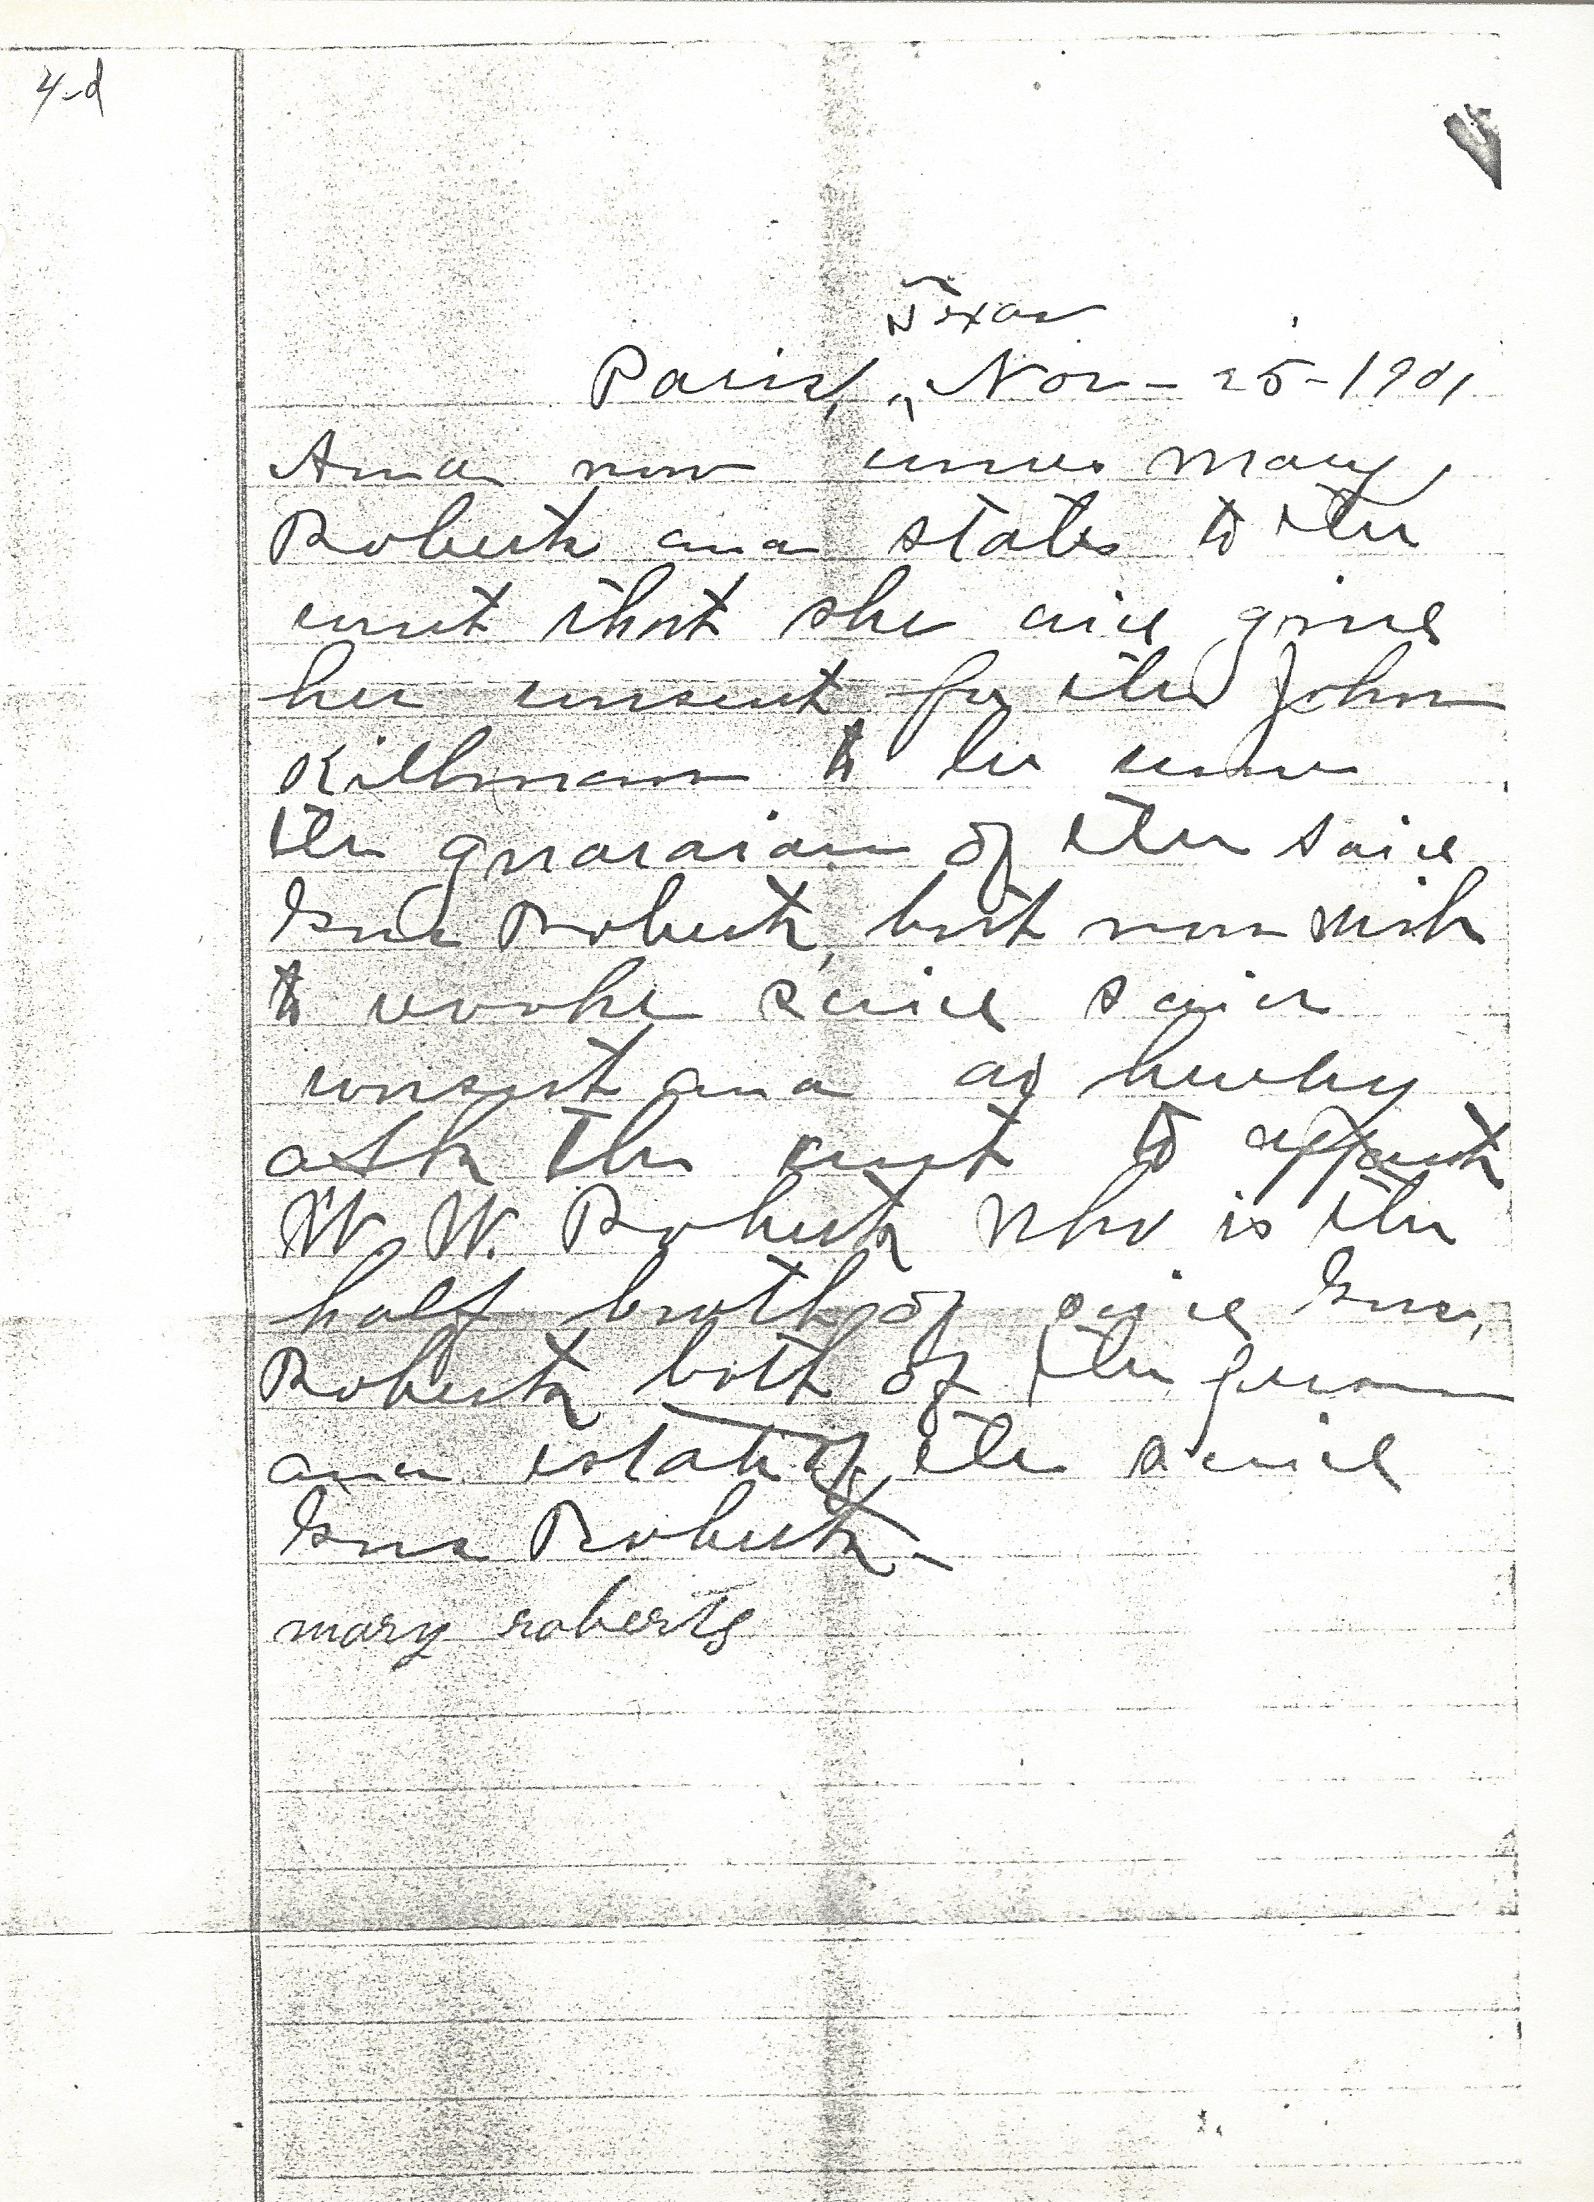 4-d
Texas
Paris, Nov - 25 - 1901
And now comes Mary
Roberts and states to the
court that she did give
her consent for the John
Killman to be come
the guardian of the said
Gus Roberts, but now wish
to revoke said said
consent and do hereby
ask the court to appoint
W. W. Roberts who is the
half brother of said Gus,
Roberts both of the person
and estate of the said
Gus Roberts -
mary roberts